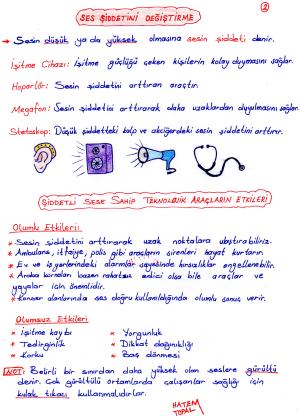 SES ŞİDDETİNİ DEĞİŞTİRME
2
→ Sesin düşük ya da yüksek olmasına sesin şiddeti denir.
İşitme Cihazı: İşitme güçlüğü çeken kişilerin kolay duymasını sağlar.
Hoparlör: Sesin şiddetini arttıran araçtır.
Megafon: Sesin şiddetini arttırarak daha uzaklardan duyulmasını sağlar.
Steteskop: Düşük şiddetteki kalp ve akciğerdeki sesin şiddetini arttırır.
ŞİDDETLİ SESE SAHİP TEKNOLOJİK ARAÇLARIN ETKİLERİ
Olumlu Etkileri
* Sesin şiddetini arttırarak uzak noktalara ulaştırabiliriz.
* Ambulans, itfaiye, polis gibi araçların sirenleri hayat kurtarır.
* Ev ve işyerlerindeki alarmlar sayesinde hırsızlıklar engellenebilir.
* Araba kornaları bazen rahatsız edici olsa bile araçlar ve
yayalar için önemlidir.
* Konser alanlarında ses doğru kullanıldığında olumlu sonuç verir.
Olumsuz Etkileri
* İşitme kaybı * Yorgunluk
* Tedirginlik * Dikkat dağınıklığı
* Korku * Baş dönmesi
NOT: Belirli bir sınırdan daha yüksek olan seslere gürültü
denir. Çok gürültülü ortamlarda çalışanlar sağlığı için
kulak tıkacı kullanmalıdırlar.
HATEM
TOPAL